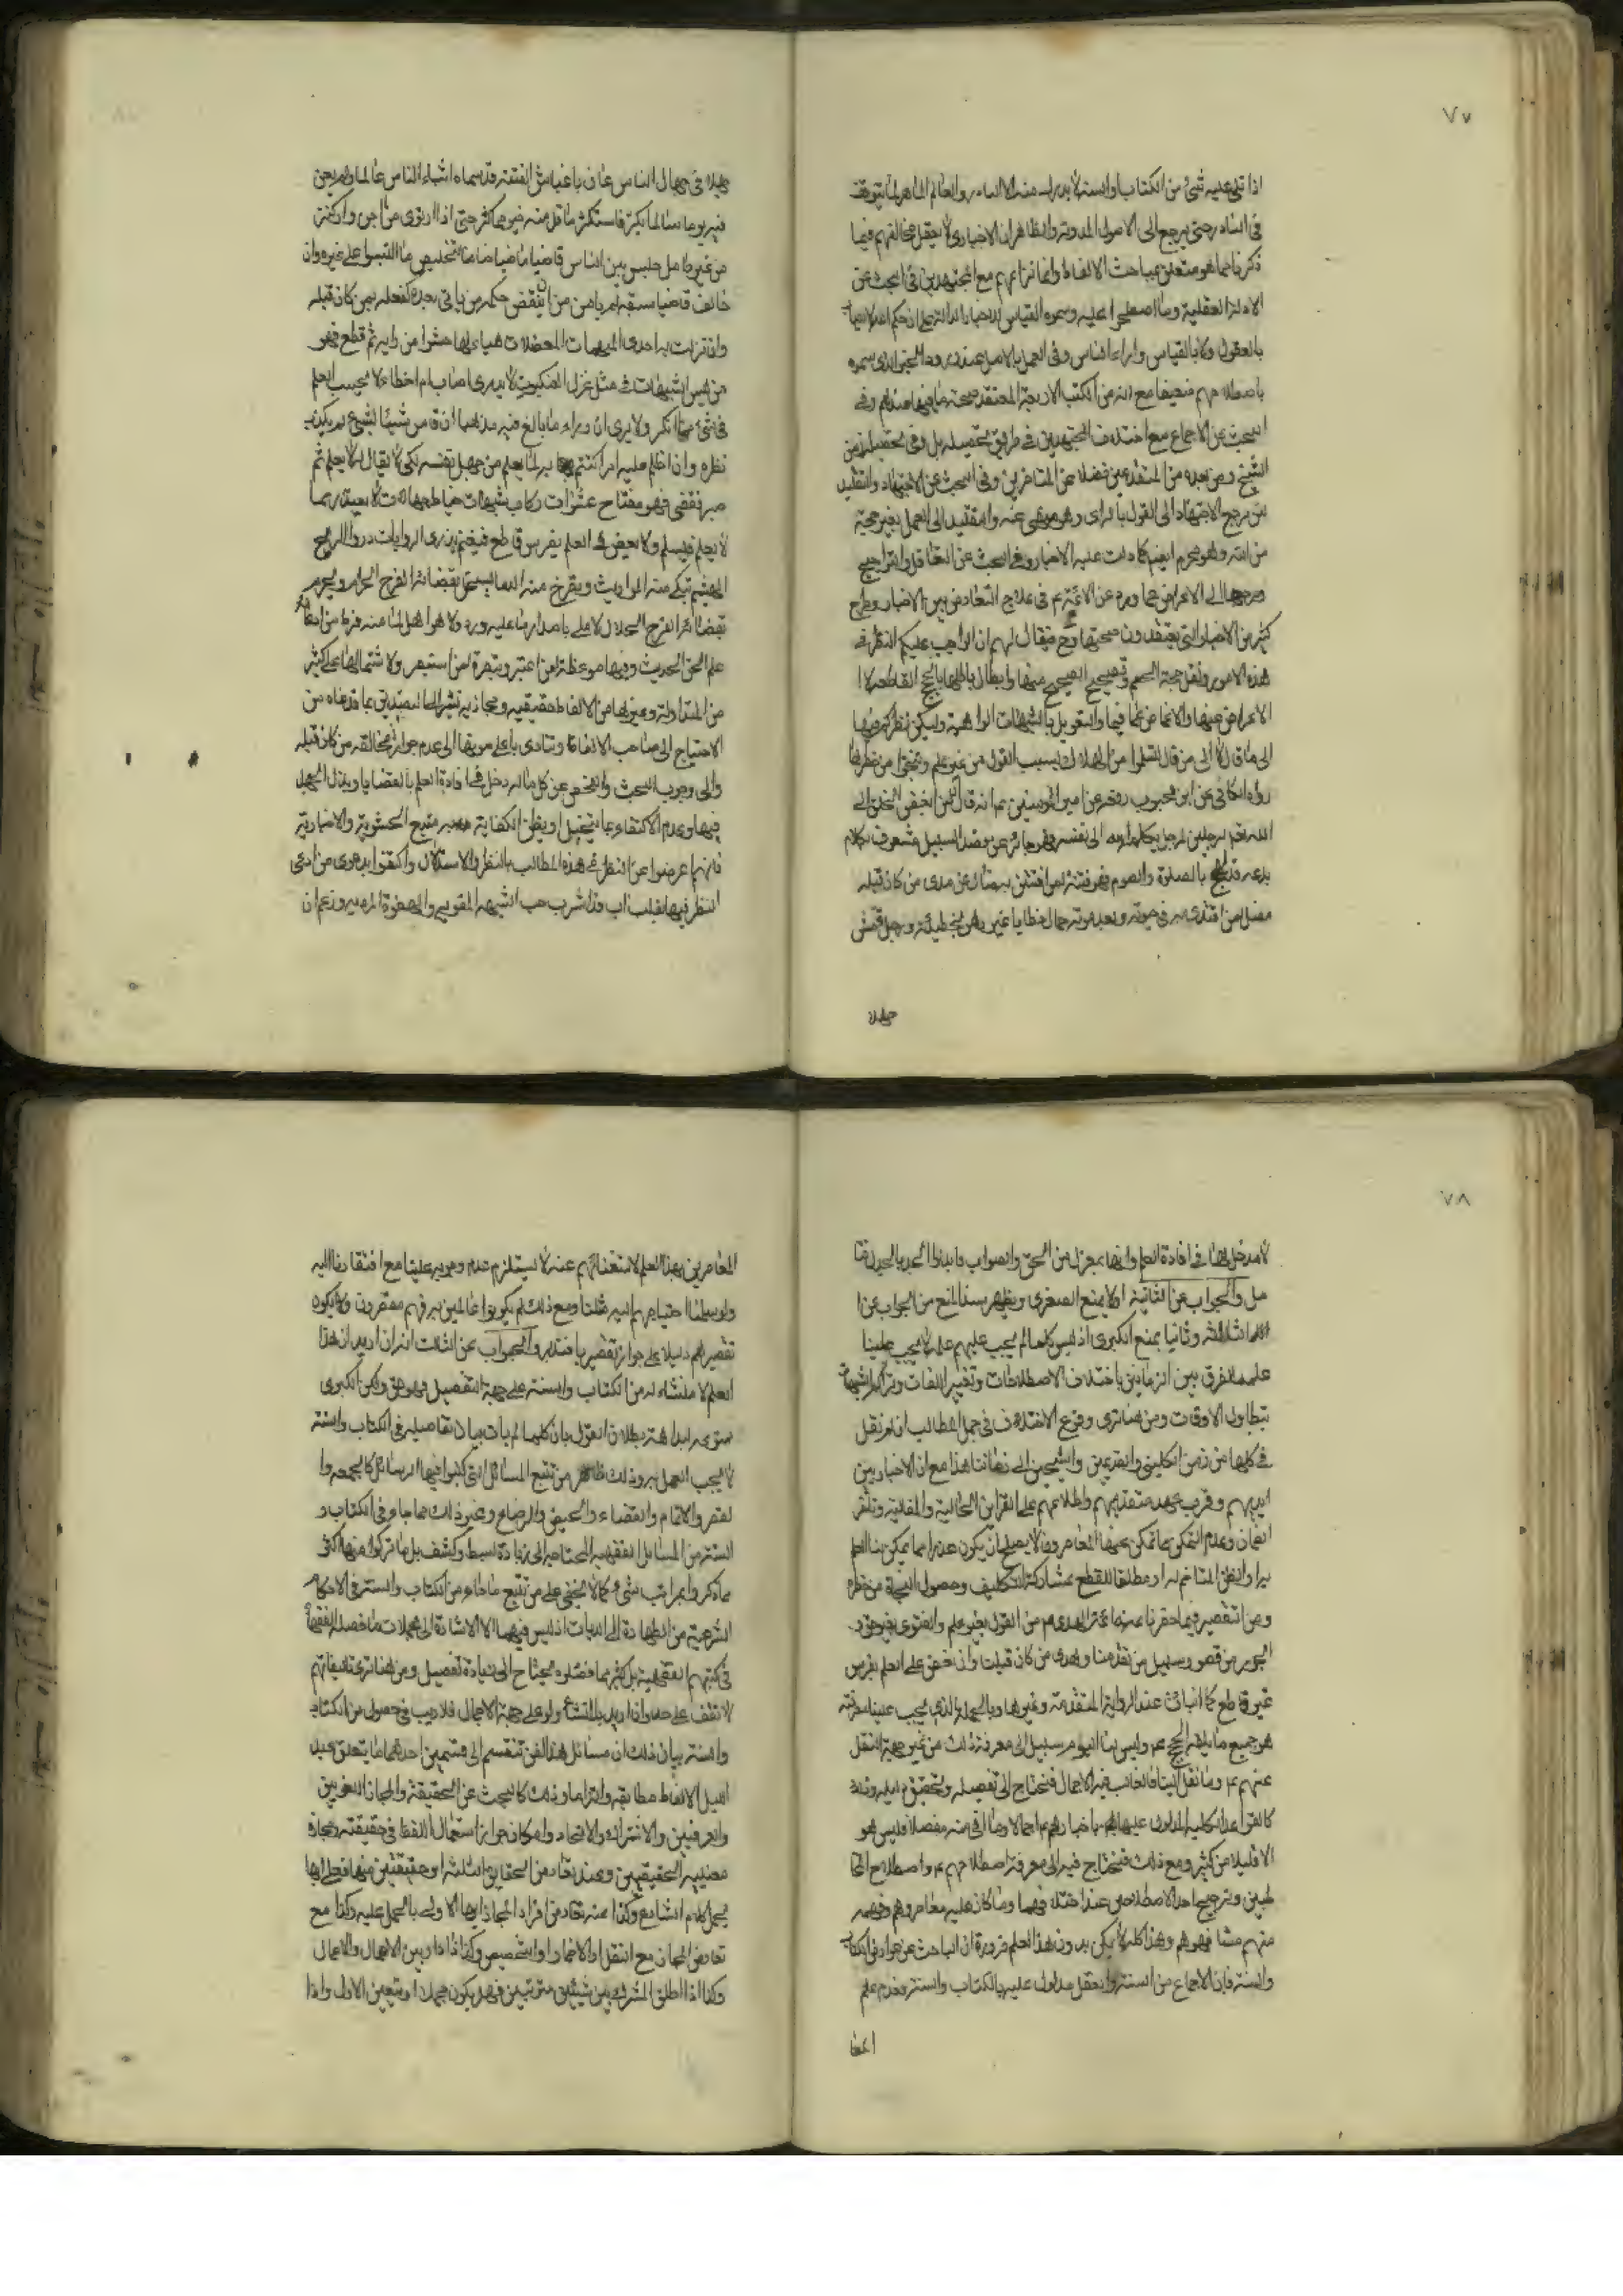 ٧٧
اذا تلى عليه شئ من الكتاب والسنة لا يدرك منه الا النادر والعالم الماهر لما يتوقف
فى النادر حتى يرجع الى الاصول المدونة والظاهر ان الاخبارى لا يعقل مخالفتهم فيما
ذكرنا مما هو متعلق بمباحث الالفاظ وانما نزاعهم مع المجتهدين فى البحث عن
الادلة العقلية وما اصطلحوا عليه وسموه القياس للاخبار الدالة على ان حكم الله لا يصاب
بالعقول ولا بالقياس واراء الناس وفى العمل بالاصل عندهم وبالخبر الذى سموه
باصطلاحهم ضعيفا مع انه من الكتب الاربعة المعتقد صحة ما فيها عندهم وفى
البحث عن الاجماع مع اختلاف المجتهدين فى طريق تحصيله بل وفى تحصيله زمن
الشيخ ومن بعده من المتقدمين فضلا عن المتاخرين وفى البحث عن الاجتهاد والتقليد
من مرجع الاجتهاد الى القول بالراى وهو منهى عنه والتقليد الى العمل بغير حجة
من الله وهو محرم ايضا كما دلت عليه الاخبار وفى البحث عن التعادل والتراجيح
ومرجعها الى الاعراض عما ورد عن الائمة ع فى علاج التعارض بين الاخبار وطرح
كثير من الاخبار التى يعتقدون صحتها وح فيقال لهم ان الواجب عليكم النظر فى
هذه الامور ونقل حجة الخصم وتصحيح الصحيح منها وابطال باطلها بالحجج القاطعة لا
الاعراض عنها والاغماض عما فيها والتعويل بالشبهات الواهية وليكن نظركم فيها
الى ما قال لا الى من قال لتسلموا من الهلاك بسبب القول من غير علم وتنجوا من خطر ما
رواه الكافى عن ابن محبوب رفعه عن امير المؤمنين ع انه قال ان من ابغض الخلق الى
الله تعالى لرجلين رجل وكله الله الى نفسه فهو جائر عن قصد السبيل مشعوف بكلام
بدعة قد لهج بالصلوة والصوم فهو فتنة لمن افتتن به ضال عن هدى من كان قبله
مضل لمن اقتدى به فى حيوته وبعد موته حمال خطايا غيره رهن بخطيئته ورجل قمش
جهلا
جهلا فى جهال الناس عان باغباش الفتنة قد سماه اشباه الناس عالما ولم يغن
فيه يوما سالما بكر فاستكثر ما قل منه خير مما كثر حتى اذا ارتوى من اجن واكتنز
من غير طائل جلس بين الناس قاضيا ماضيا ضامنا لتخليص ما التبس على غيره وان
خالف قاضيا سبقه لم يامن من ان ينقض حكمه من ياتى بعده كفعله بمن كان قبله
وان نزلت به احدى المبهمات المعضلات هيا لها حشوا من رايه ثم قطع فهو
من لبس الشبهات فى مثل غزل العنكبوت لا يدرى اصاب ام اخطاء لا يحسب العلم
فى شئ مما انكر ولا يرى ان وراء ما بالغ فيه مذهبا ان قاس شيئا بشئ لم يكذب
نظره وان اظلم عليه امر اكتتم به لما يعلم من جهل نفسه لكى لا يقال له لا يعلم ثم
جسر فقضى فهو مفتاح عشوات ركاب شبهات خباط جهالات لا يعتذر مما
لا يعلم فيسلم ولا يعض فى العلم بضرس قاطع فيغنم يذرى الروايات ذرو الريح
الهشيم تبكى منه المواريث وتصرخ منه الدماء يستحل بقضائه الفرج الحرام ويحرم
بقضائه الفرج الحلال لا ملى باصدار ما عليه ورد ولا هو اهل لما منه فرط من ادعائه
علم الحق الحديث وفيها موعظة لمن اعتبر وتبصرة لمن استبصر ولا شتمالها على كثير
من المتداولة وغيرها من الالفاظ حقيقيه ومجازيه تشير الى التصديق بما قدمناه من
الاحتياج الى مباحث الالفاظ وتنادى باعلى صوتها الى عدم جواز مخالفة من كان قبله
والى وجوب البحث والفحص عن كل ما له دخل فى افادة العلم بالقضايا وبذل الجهد
فيها وعدم الاكتفاء بما يتخيل او يظن الكفاية به متبع الحشوية والاخبارية
فانهم اعرضوا عن النظر فى هذه المطالب بالنظر والاستدلال واكتفوا بدعوى من ادعى
النظر فيها بقلب اب وقد اشرب حب الشبهه المقويه والصفوة المرديه وزعم ان
٧٨
لا مدخل لها فى افادة العلم وانها بمعزل من الحق والصواب
مل والجواب عن الثانية اولا بمنع الصغرى ويظهر سند المنع من الجواب عن
الثالثة وثانيا بمنع الكبرى اذ ليس كلما لم يجب عليهم علمه لا يجب علينا
علمه للفرق بين الزمانين باختلاف الاصطلاحات وتغيير اللغات وتراكم الشبهات
بتطاول الاوقات ومن هنا ترى وقوع الاختلاف فى جل المطالب ان لم نقل
فى كلها من زمن الكلينى والقديمين والشيخين الى زماننا هذا مع ان الاخبار بين
ايديهم وقرب عهد متقدميهم واطلاعهم على القراين الحالية والمقالية وتاخر
الزمان وعدم التمكن مما تمكن منها المعاصرون لا يصلح ان يكون عذرا مما يمكن بنا العلم
به او الظن المتاخم له او مطلقا للقطع بمشاركة التكليف وحصول النجاة من خطره
ومن التقصير فيما حذرنا عنه ائمة الهدى ع من القول بغير علم والفتوى بغير حق و
الجور من قصد وسبيل من تقدمنا وهدى من كان قبلنا وان نعض على العلم بضرس
غير قاطع كما انبات عنه الرواية المتقدمة وغيرها وبالجملة الذى يجب علينا معرفته
هو جميع ما بلغه الحجج ع وليس بنا اليوم سبيل الى معرفة ذلك من غير جهة النقل
عنهم ع وما نقل الينا فالغالب فيه الاجمال فنحتاج الى تفصيله وتحقيق
كالقواعد الكلية المدلول عليها باخبارهم اجمالا وما القى منه مفصلا فليس هو
الا قليلا من كثير ومع ذلك فنحتاج فيه الى معرفة اصطلاحهم ع واصطلاح المخا
طبين وترجيح احد الاصطلاحين عند اختلافهما وما كان عليه معاصروهم وفهمه
منهم مشافهوهم وهذا كله لا يمكن بدون هذا العلم ضرورة ان الباحث عن عوارض الكتاب
والسنة فان الاجماع من السنة والعقل مدلول عليه بالكتاب والسنة وعدم علم
المعا
المعاصرين بهذا العلم لاستغنائهم عنه لا يستلزم عدم وجوبه علينا مع افتقارنا اليه
ولو سلمنا احتياجهم اليه مثلنا ومع ذلك لم يكونوا عالمين به فهم مقصرون ولا يكون
تقصيرهم دليلا على جواز تقصيرنا والجواب عن الثالث انه ان اريد ان هذا
العلم لا منشاء له من الكتاب والسنة على جهة التفصيل فهو حق ولكن الكبرى
ممنوعه لبداهة بطلان القول بان كلما لم يات بيان تفاصيله فى الكتاب والسنة
لا يجب العمل به وذلك ظاهر من تتبع المسائل التى كتبوا فيها الرسائل كالجمعه وا
لقصر والاتمام والقضاء والحيض والرضاع وغير ذلك مما جاء فى الكتاب و
السنة من المسائل الفقهيه المحتاجه الى زيادة بسط وكشف بل ما تركوا منها اكثر
مما ذكروا بمراتب شتى كما لا يخفى على من تتبع ما جاء من الكتاب والسنة فى الاحكام
الشرعية من الطهارة الى الديات اذ ليس فيهما الا الاشارة الى مجملات ما فصله الفقهاء
فى كتبهم الفقهية بل كثير مما فصلوه يحتاج الى زيادة تفصيل ومن هنا ترى تاليفاتهم
لا تقف على حد وان اريد بالمنشاء ولو على جهة الاجمال فلا ريب فى حصول من الكتاب
والسنة بيان ذلك ان مسائل هذا الفن تنقسم الى قسمين احدهما ما يتعلق بمد
اليل الالفاظ مطابقه والتزاما وذلك كالبحث عن الحقيقة والمجاز اللغويين
والعرفيين والاشتراك والاتحاد وامكان جواز استعمال اللفظ فى حقيقته ومجازه
الحقيقتين وعند تعارض الحقايق الثلثة او حقيقتين منها فعلى ايها
يحمل كلام الشارع وكذا عند تعارض افراد المجاز ايها الاولى بالحمل عليه وكذا مع
تعارض المجاز مع النقل او الاضمار او التخصيص وكذا اذا دار بين الاهمال والاعمال
وكذا اذا اطلق المشترك بين شيئين مترتبين فهل يكون مجملا او يتعين الاول واذا